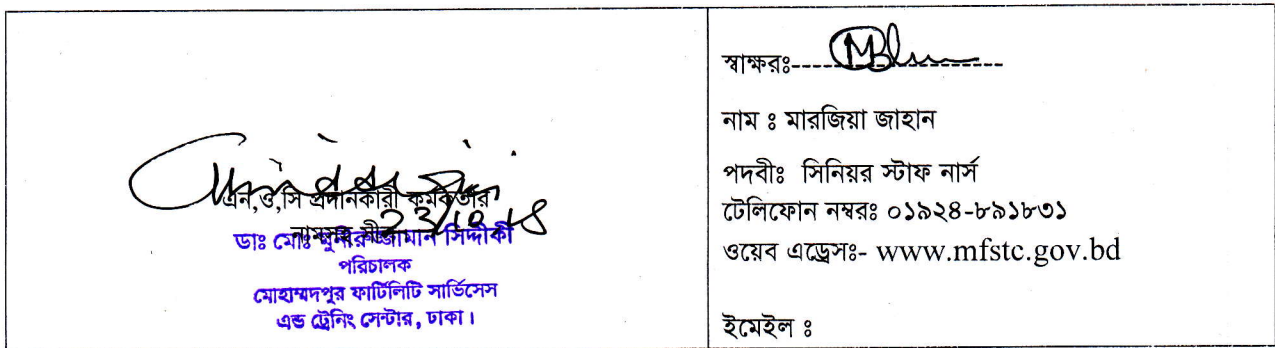 এন,ও,সি প্রদানকারী কর্মকর্তার
23/10/18
ডাঃ মোঃ মুনীরুজ্জামান সিদ্দীকী
পরিচালক
মোহাম্মদপুর ফার্টিলিটি সার্ভিসেস
এন্ড ট্রেনিং সেন্টার, ঢাকা।
স্বাক্ষরঃ--------------------
নাম ঃ মারজিয়া জাহান
পদবীঃ সিনিয়র স্টাফ নার্স
টেলিফোন নম্বরঃ ০১৯২৪-৮৯১৮৩১
ওয়েব এড্রেসঃ- www.mfstc.gov.bd
ইমেইল ঃ